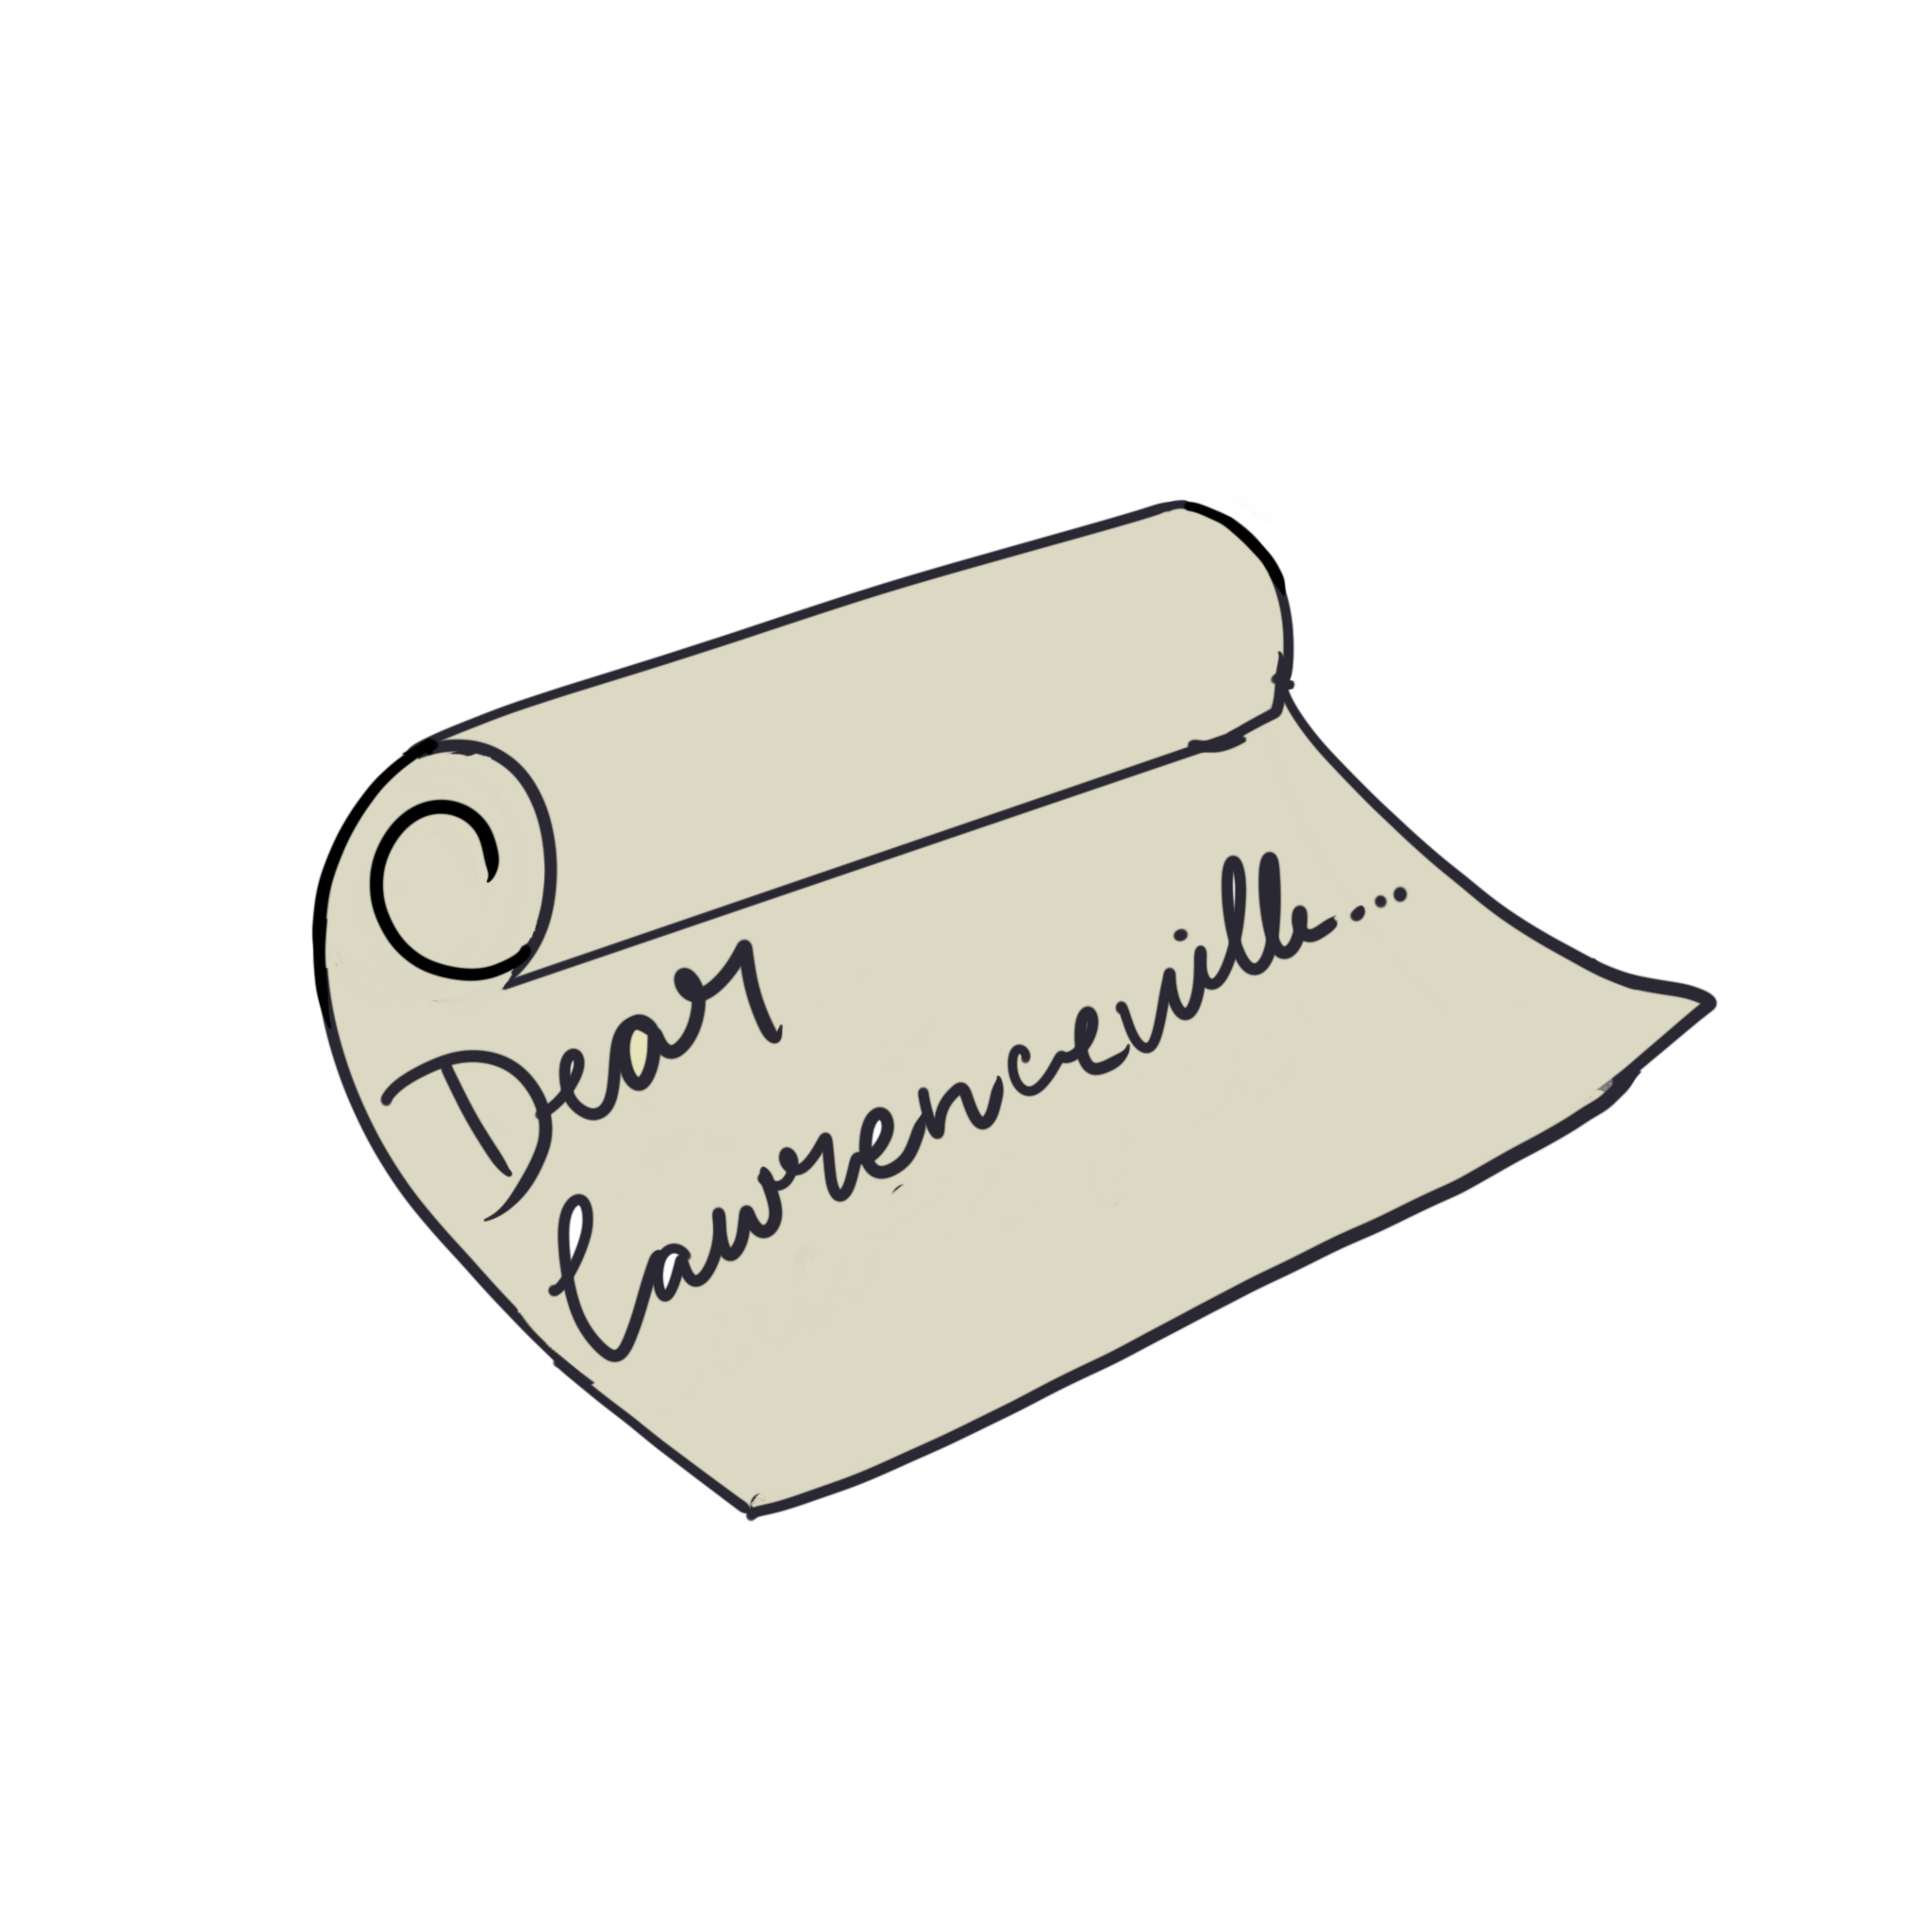 Dear
Lawrenceville...